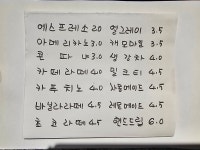 에스프레소 2.0 얼그레이 3.5
아메리카노 3.0 캐모마일 3.5
콘 파 나 3.0 생강차 4.0
카페라떼 4.0 밀크티 4.5
카푸치노 4.0 자몽에이드 4.5
바닐라라떼 4.5 레몬에이드 4.5
초코라떼 4.5 핸드드립 6.0